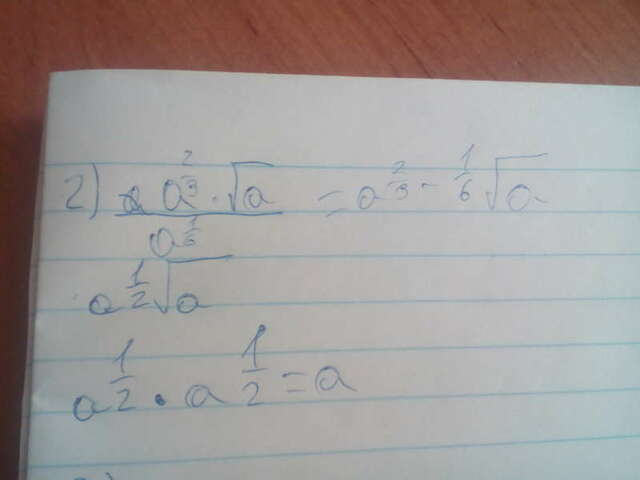 2) a^(2/3) · √a / a^(1/6) = a^(2/3 - 1/6) √a
a^(1/2) √a
a^(1/2) · a^(1/2) = a